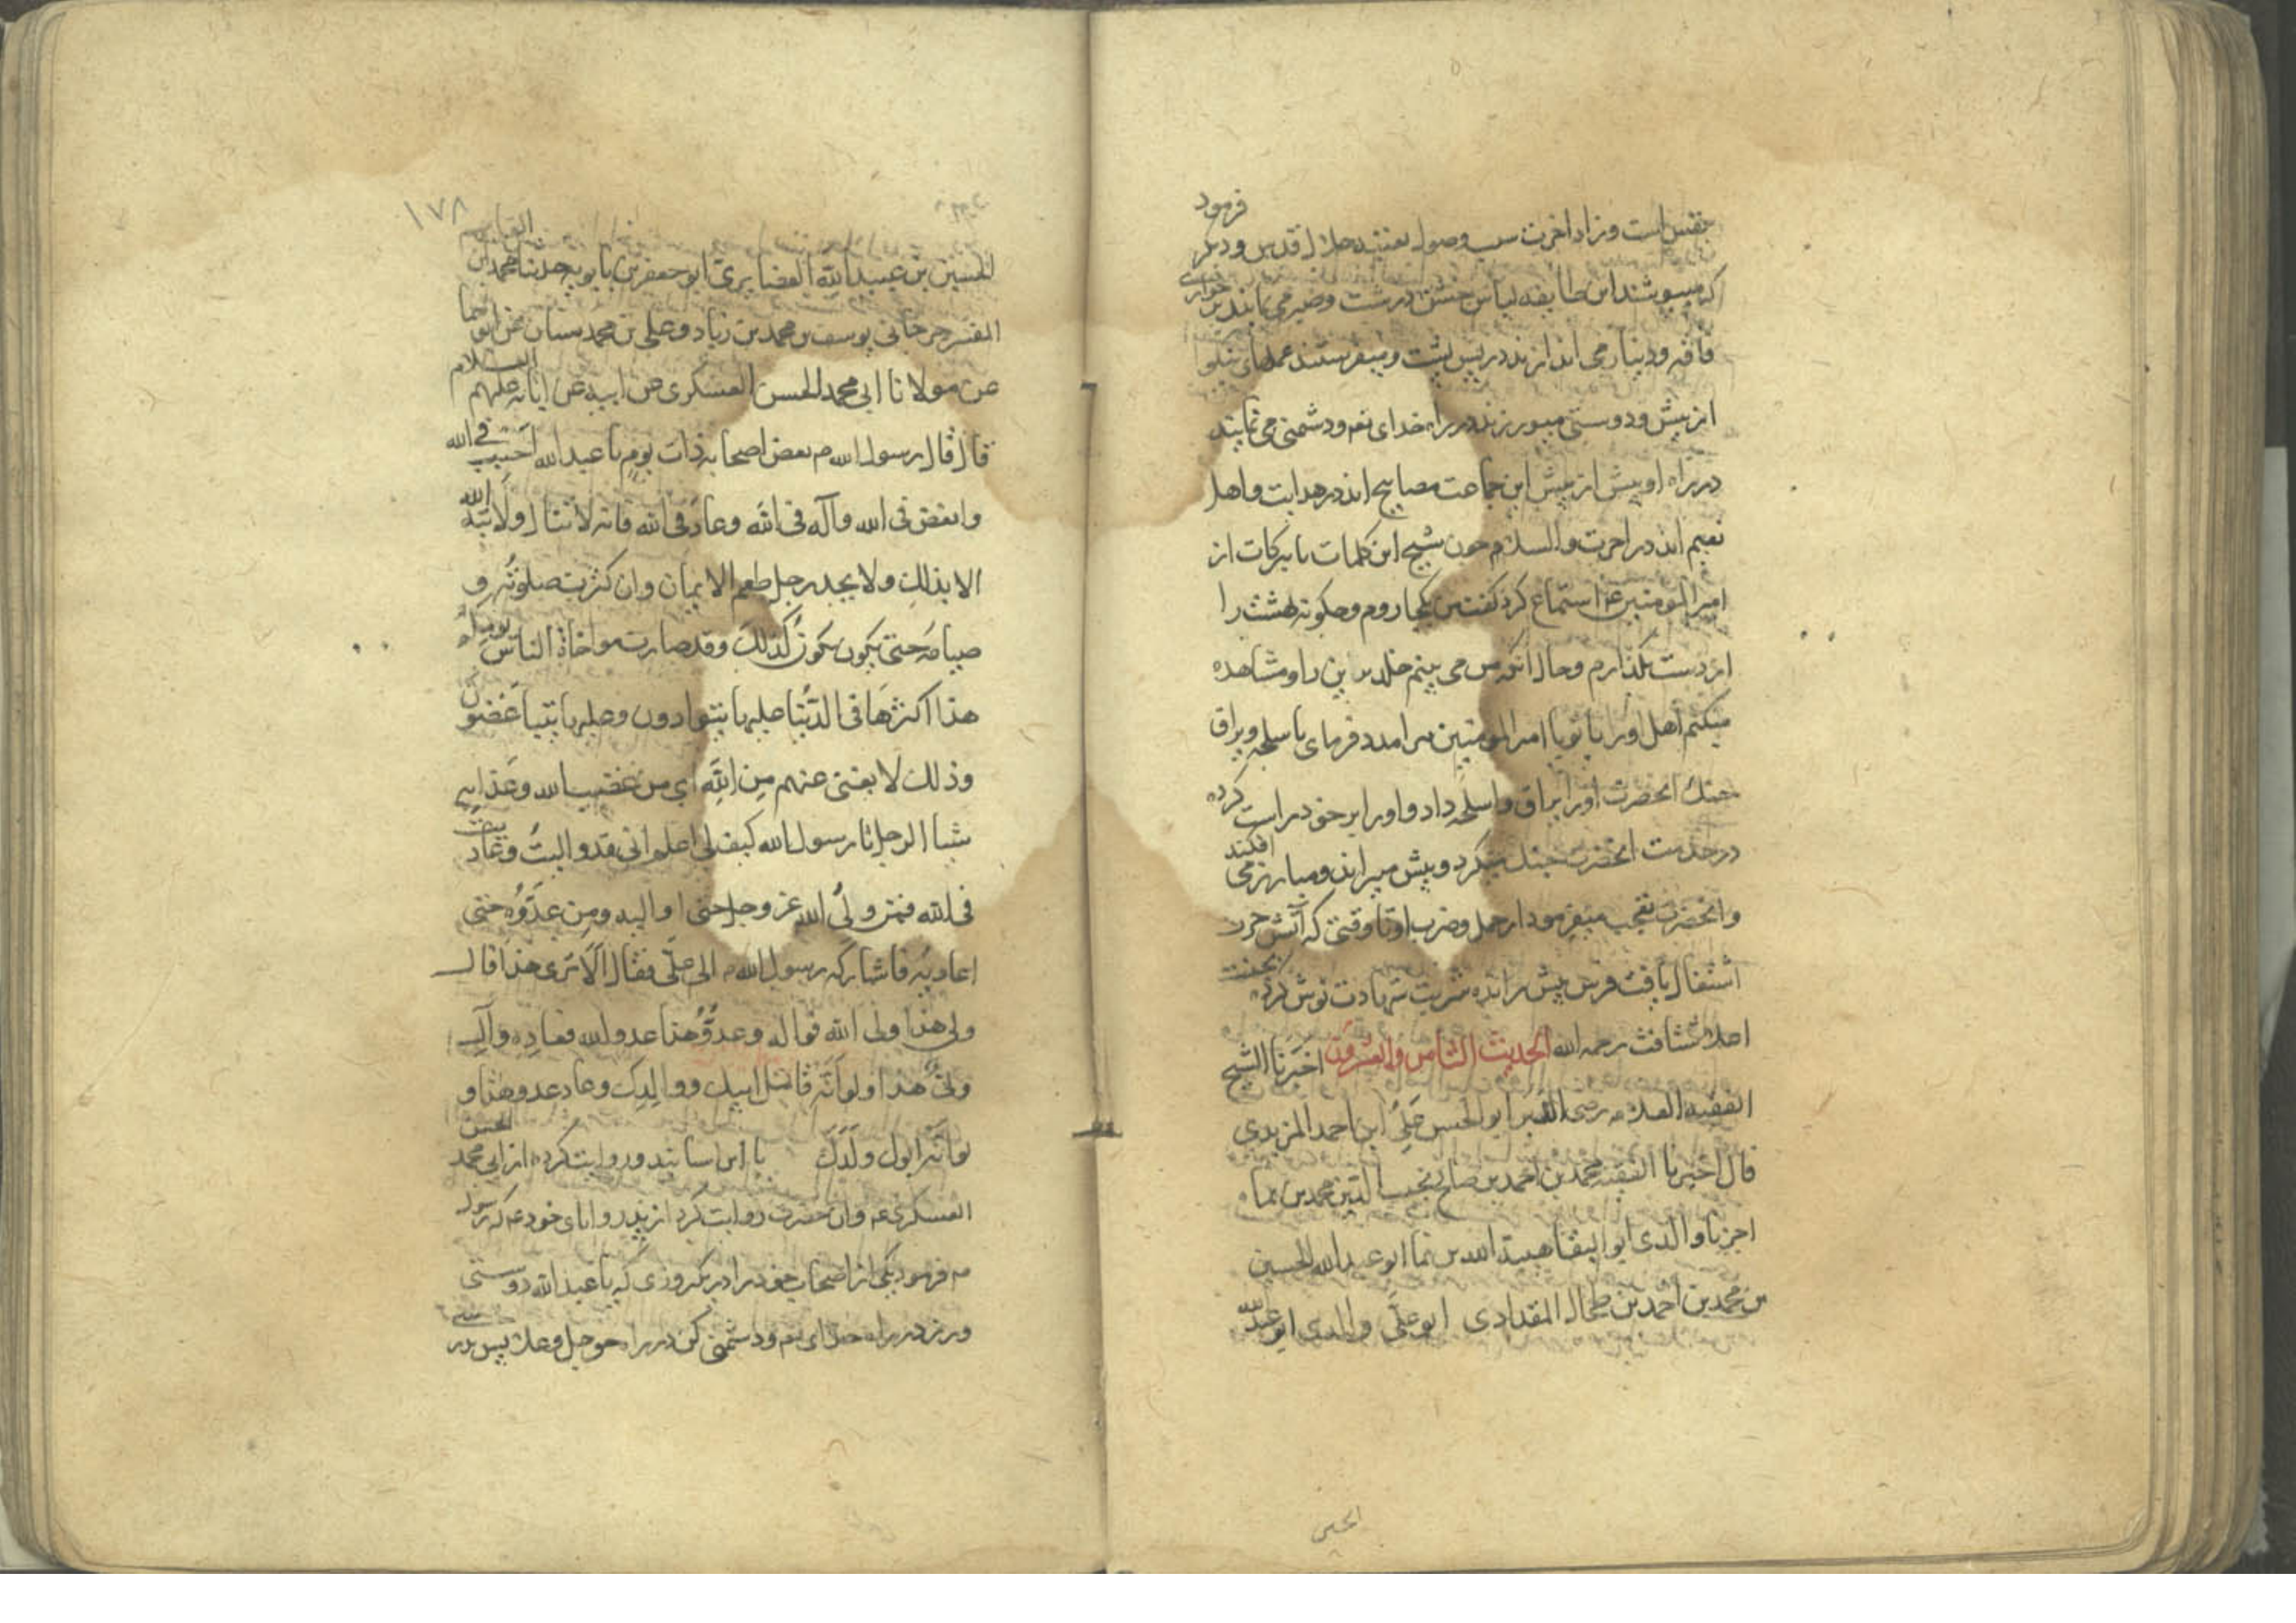 فرمود
است و زاد اخرت سبب وصول بعتبه جلال قدس و دیگر
که میپوشند این طایفه لباس خشن درشت و صبر می نمایند بر خواری
و فاقه و دینار می اندازند در پس پشت و میفرستند عملهای نیکو
از پیش و دوستی میورزند در راه خدای تعه و دشمنی می نمایند
در راه او پیش از پیش این جماعت مصابیح اند در هدایت و اهل
نعیم اند در اخرت والسلام چون شیخ این کلمات بابرکات از
امیرالمومنین ع استماع کرد گفت من بکجا روم و چگونه بهشت را
از دست بگذارم و حال آنکه من می بینم خلد برین را و مشاهده
میکنم اهل او را با تو یا امیرالمومنین مرا مدد فرمای باسلحه و یراق
جنک انحضرت او را یراق و اسلحه داد و او را بر خود راست کرده
در خدمت انحضرت جنک میکرد و پیش میراند و مبارز می افکند
و انحضرت تعجب میفرمود از حمل و ضرب او تا وقتی که آتش حرب
اشتعال یافت فرس پیش رانده شربت شهادت نوش کرده بجنت
اعلا شتافت رحمه الله الحدیث الثامن والعشرون اخبرنا الشیخ
الفقیه العلامه رضی الدین ابو الحسن علی ابن احمد المزیدی
قال اخبرنا الفقیه محمد بن احمد بن صالح نجیب الدین محمد بن نما
اخبرنا والدی ابو البقا هبة الله بن نما ابو عبدالله الحسین
بن محمد بن احمد بن طحال المقدادی ابو علی والدی ابو عبدالله
الحسین
١٧٨
الحسین بن عبیدالله الغضایری ابو جعفر بن بابویه حدثنا محمد ابن القاسم
المفسر جرجانی یوسف بن محمد بن زیاد و علی بن محمد سنان عن ابویهما
عن مولانا ابی محمد الحسن العسکری عن ابیه عن ابائه علیهم السلام
قال قال رسول الله م بعض اصحابه ذات یوم یا عبدالله احبب فی الله
وابغض فی الله وآله فی الله وعاد فی الله فانه لا تنال ولایة الله
الا بذلک ولا یجد رجل طعم الایمان وان کثرت صلوته و
صیامه حتی یکون یکون کذلک وقد صارت مواخاة الناس یومکم
هذا اکثرها فی الدنیا علیها یتوادون وعلیها یتباغضون
وذلک لا یغنی عنهم من الله ای من غضب الله وعذابه
شیئا الرجل یا رسول الله کیف لی اعلم انی قد والیت وعادیت
فی الله فمن ولی الله عز وجل حتی اوالیه ومن عدوه حتی
اعادیه فاشار که رسول الله م الی علی فقال الا تری هذا قال
ولی هذا ولی الله فواله وعدو هذا عدو الله فعاده وآل
ولی هذا ولو انه قاتل ابیک وولدک وعاد عدو هذا و
لو انه ابوک وولدک با این اسانید و روایت کرده از ابی محمد الحسن
العسکری ع و ان حضرت روایت کرد از پدر و ابای خود ع که رسول
م فرمود یکی از اصحاب خود را در یکروزی که یا عبدالله دوستی
ورز در راه خدای تعه و دشمنی کن در راه حق جل و علا پس بدرستی